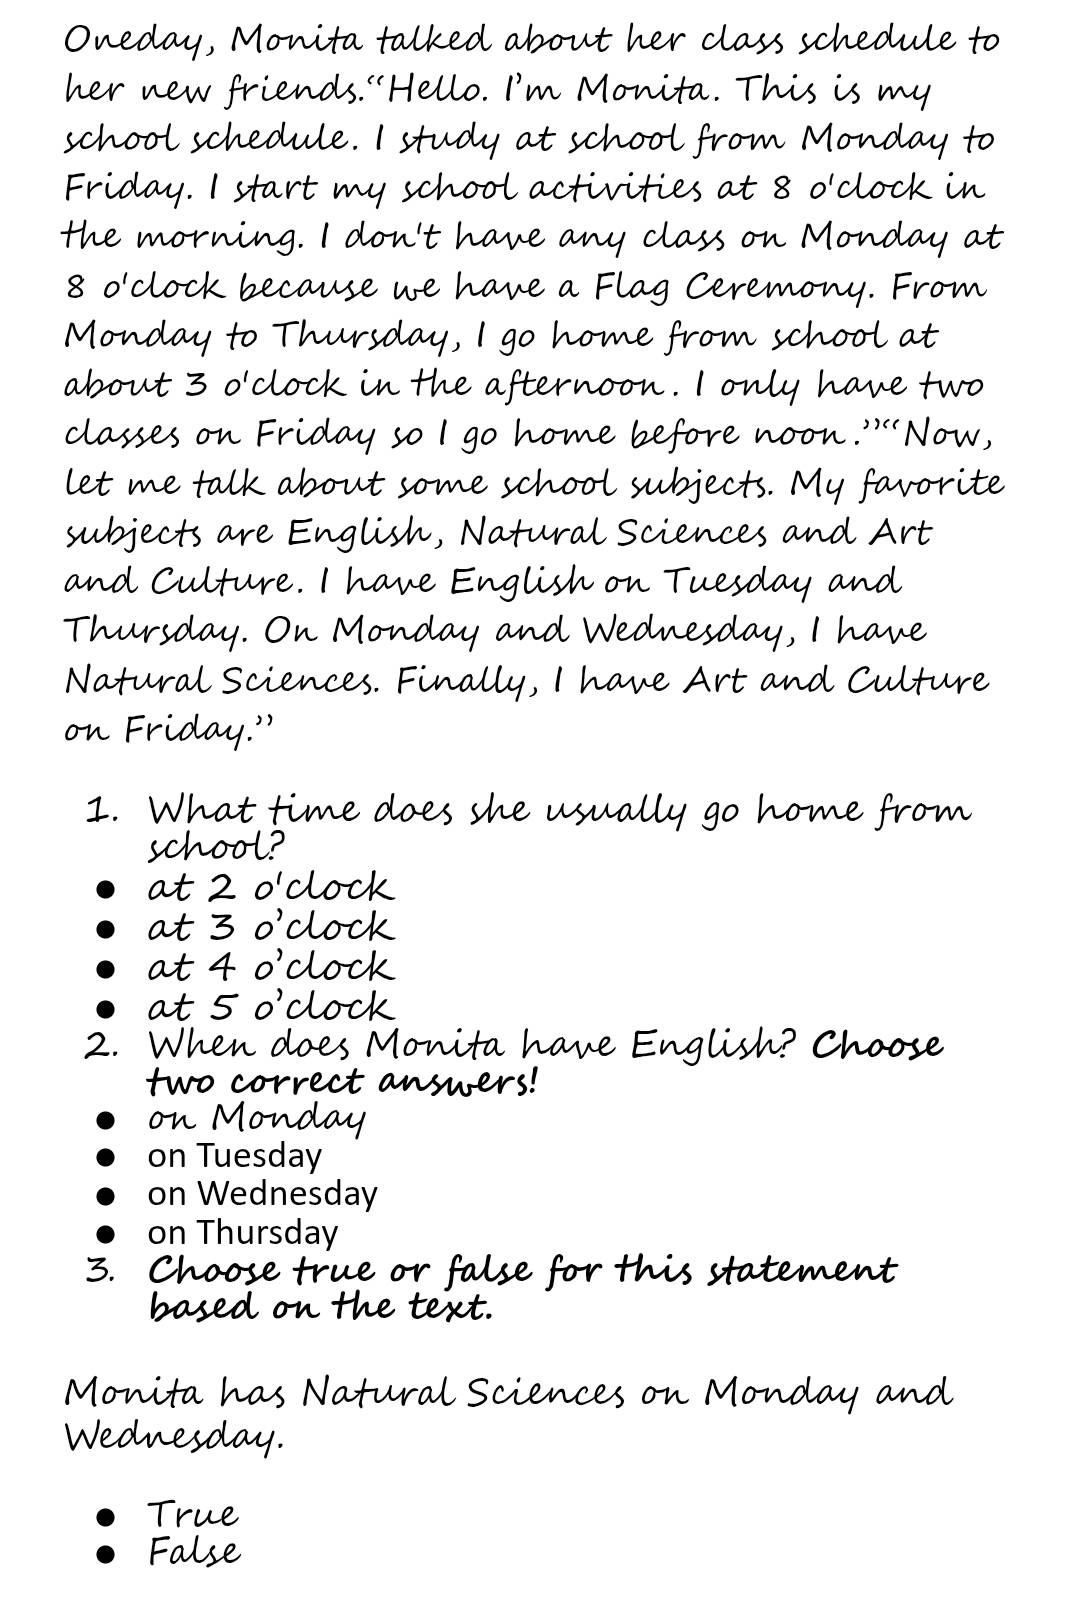 Oneday, Monita talked about her class schedule to
her new friends.“Hello. I’m Monita. This is my
school schedule. I study at school from Monday to
Friday. I start my school activities at 8 o'clock in
the morning. I don't have any class on Monday at
8 o'clock because we have a Flag Ceremony. From
Monday to Thursday, I go home from school at
about 3 o'clock in the afternoon. I only have two
classes on Friday so I go home before noon.”“Now,
let me talk about some school subjects. My favorite
subjects are English, Natural Sciences and Art
and Culture. I have English on Tuesday and
Thursday. On Monday and Wednesday, I have
Natural Sciences. Finally, I have Art and Culture
on Friday.”
1. What time does she usually go home from
school?
● at 2 o'clock
● at 3 o’clock
● at 4 o’clock
● at 5 o’clock
2. When does Monita have English? Choose
two correct answers!
● on Monday
● on Tuesday
● on Wednesday
● on Thursday
3. Choose true or false for this statement
based on the text.
Monita has Natural Sciences on Monday and
Wednesday.
● True
● False